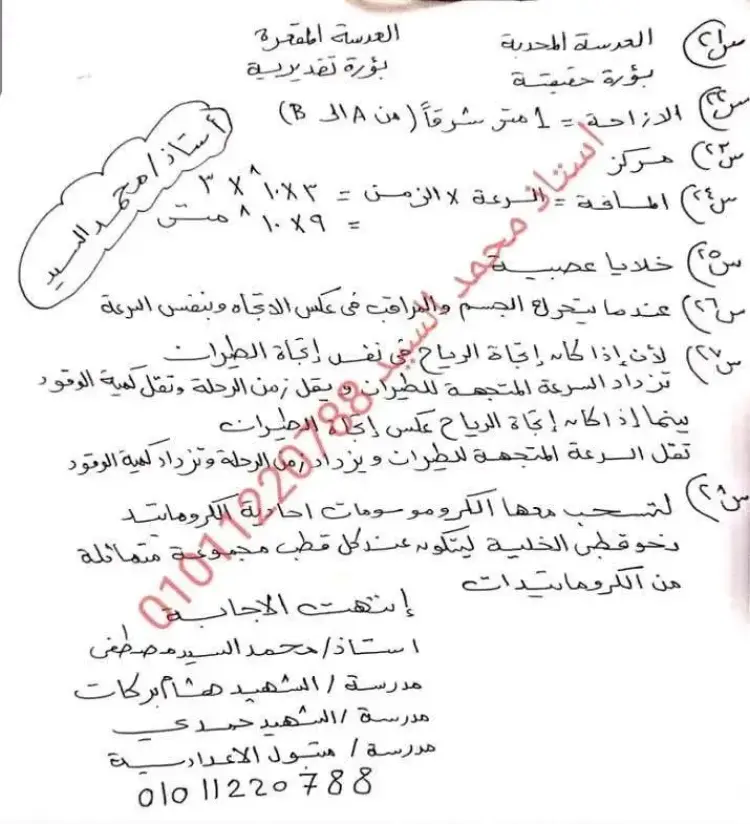 س٢١) العدسة المحدبة العدسة المقعرة
بؤرة حقيقية بؤرة تقديرية
س٢٢) الازاحة = 1 متر شرقاً (من A الى B)
س٢٣) مركز
س٢٤) المسافة = السرعة x الزمن = ٣ x ١٠^٨ x ٣
= ٩ x ١٠^٨ متر
س٢٥) خلايا عصبية
س٢٦) عندما يتحرك الجسم والمراقب فى عكس الاتجاه وبنفس السرعة
س٢٧) لأن إذا كان إتجاة الرياح فى نفس إتجاة الطيران
تزداد السرعة المتجهة للطيران ويقل زمن الرحلة وتقل كمية الوقود
بينما إذا كان إتجاة الرياح عكس إتجاة الطيران
تقل السرعة المتجهة للطيران ويزداد زمن الرحلة وتزداد كمية الوقود
س٢٨) لتسحب معها الكروموسومات احادية الكروماتيد
نحو قطبى الخلية ليتكون عند كل قطب مجموعة متماثلة
من الكروماتيدات
إنتهت الاجابة
استاذ/ محمد السيد مصطفى
مدرسة / الشهيد هشام بركات
مدرسة / الشهيد حمدي
مدرسة / متبول الاعدادية
01011220788
أستاذ/ محمد السيد
استاذ محمد السيد 01011220788